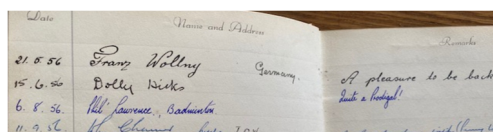 Date Name and Address Remarks
21.5.56 Franz Wollny Germany. A pleasure to be back
15.6.56 Dolly Hicks Quite a Prodigal!
6.8.56. Phil Lawrence, Badminton.